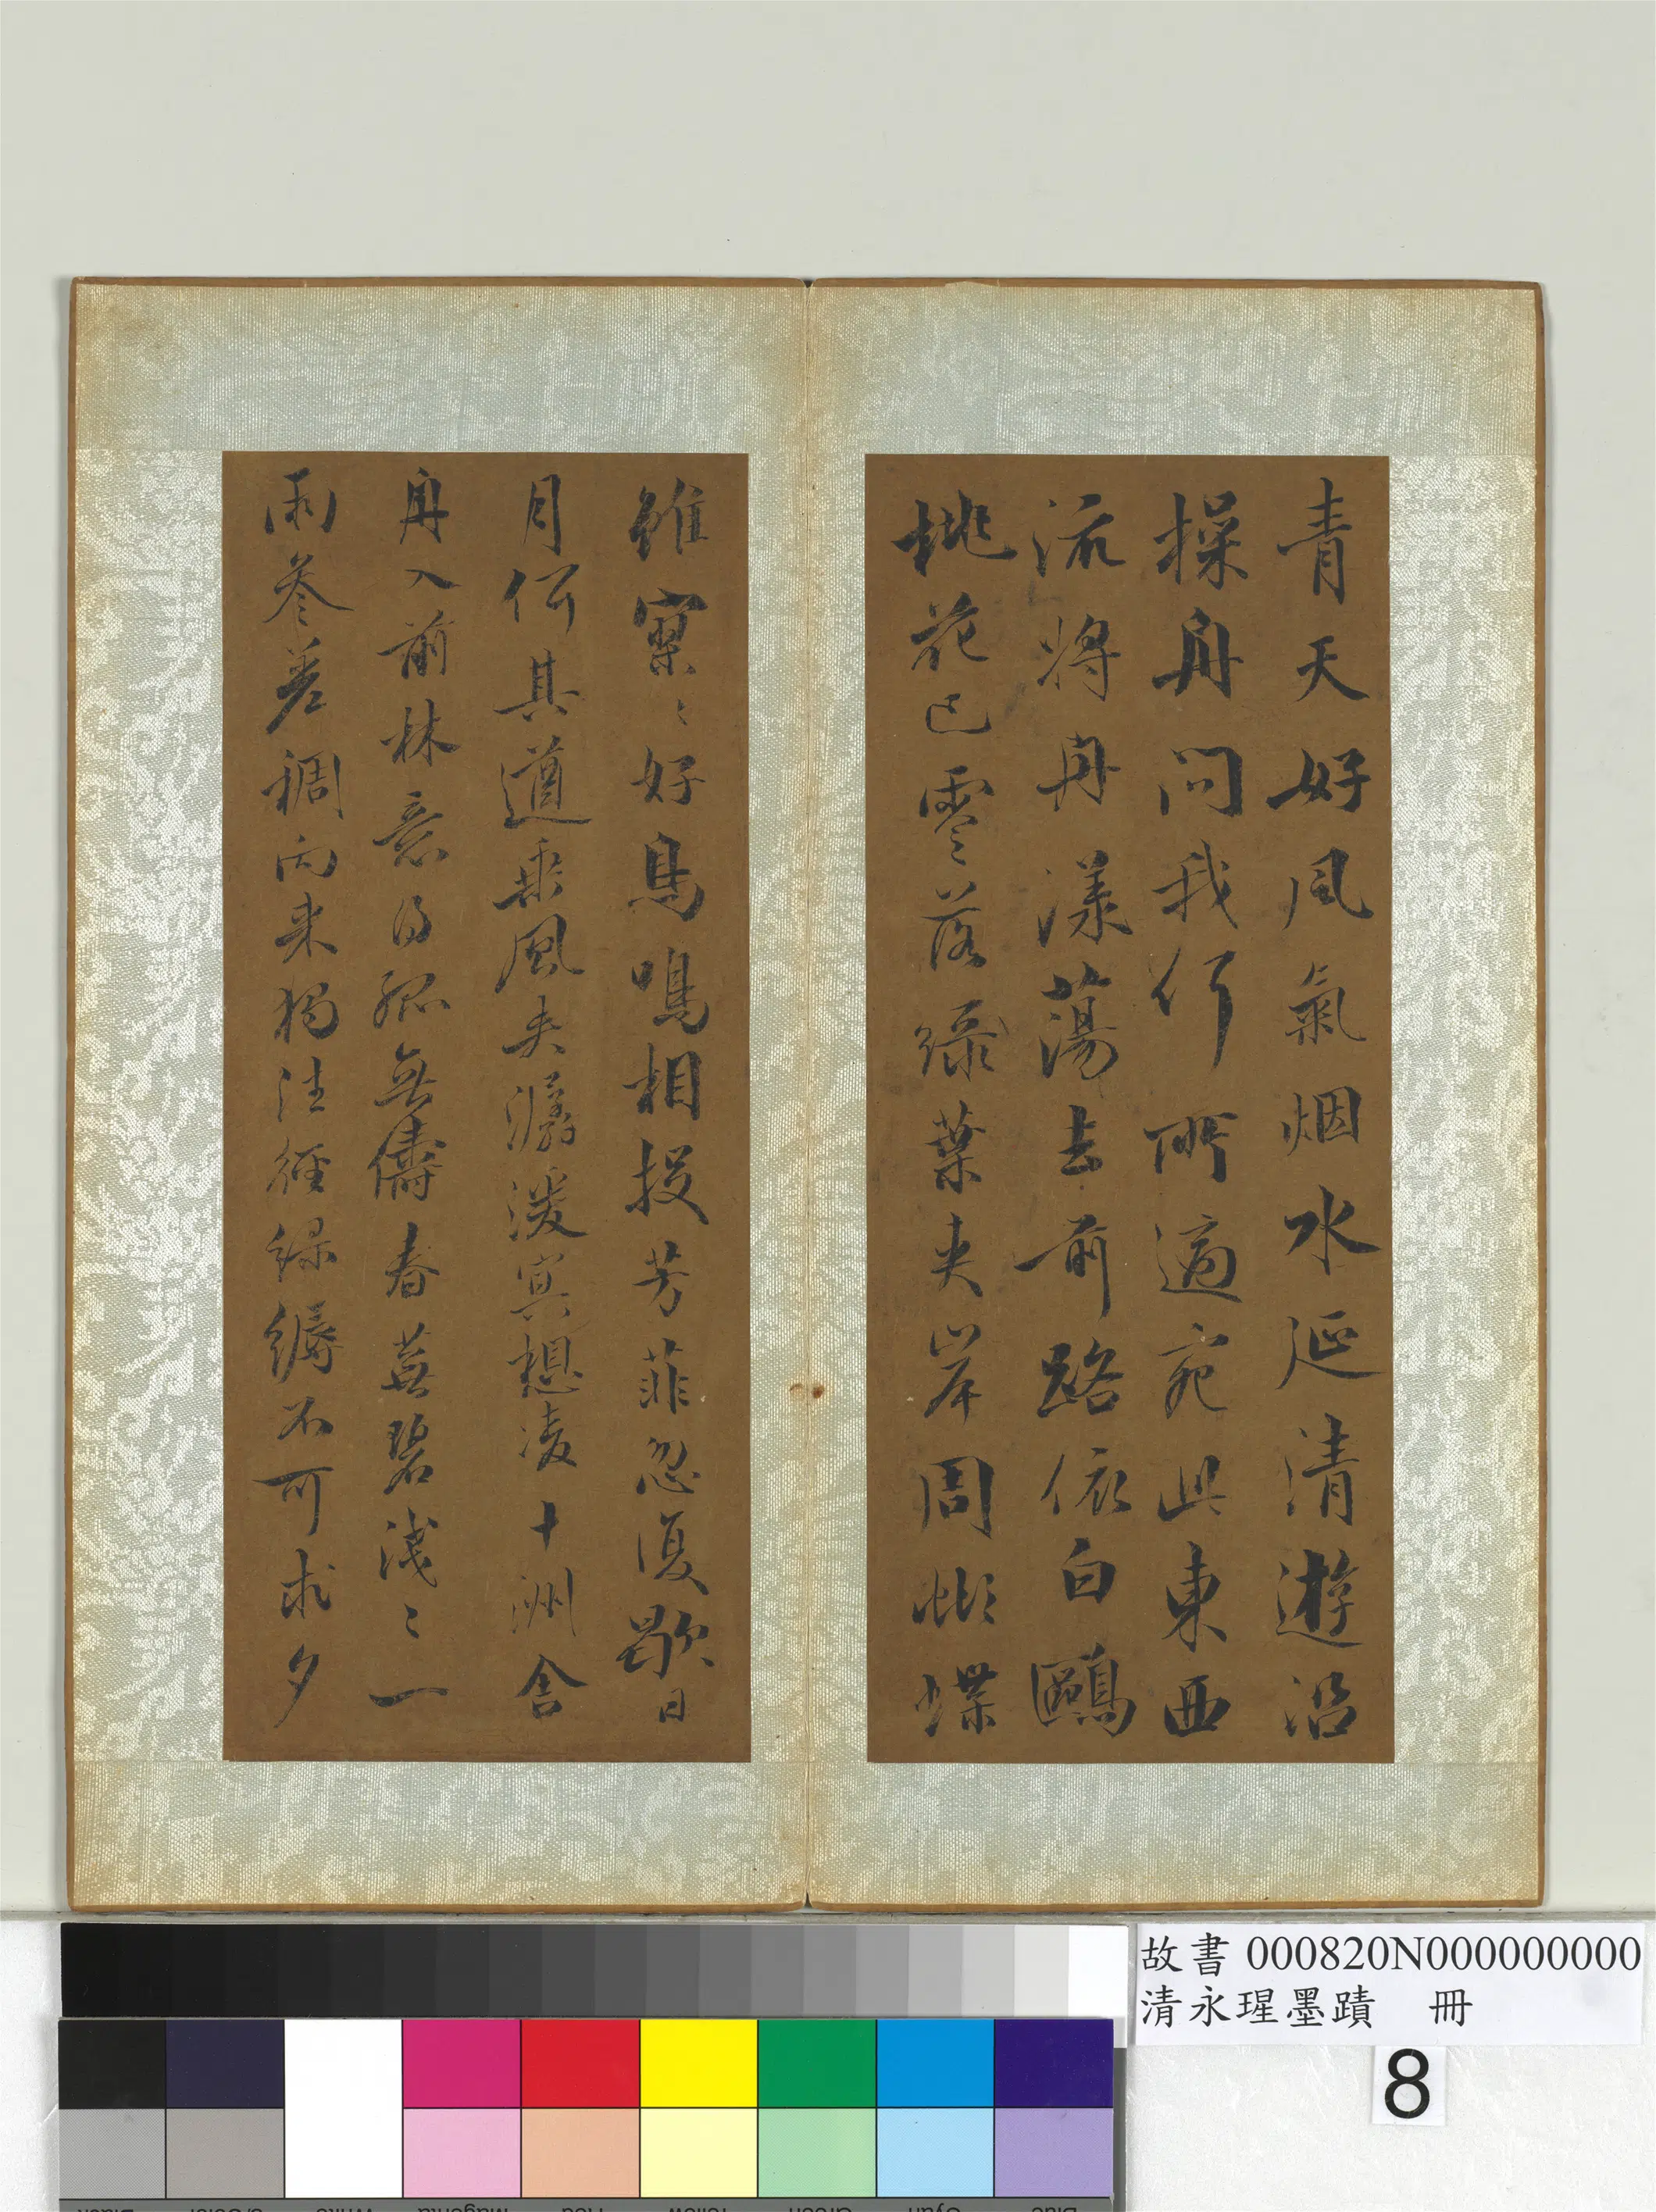 青天好風氣烟水延清遊沿
操舟問我行所適宛此東西
流將舟漾蕩去前路依白鷗
桃花已零落綠葉夾岸周蝴蝶
雖寥〻好鳥鳴相投芳菲忽復歇日
月何其遒乘風夾潺湲冥想凌十洲舍
舟入前林意得孤無儔春蕪碧淺〻一
雨參差稠向來獨往徑綠縟不可求夕
故書 000820N000000000
清永瑆墨蹟 冊
8